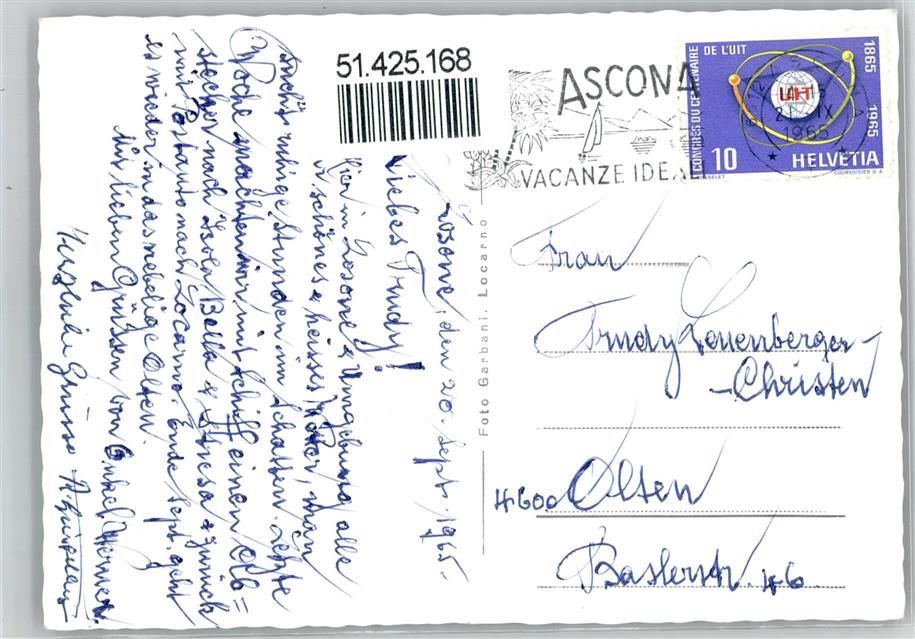 51.425.168
ASCONA
VACANZE IDEA
CONGRES DU CENTENAIRE DE L'UIT
1865 1965
UIT
1965
10 HELVETIA
COURVOISIER S.A.
Foto Garbani, Locarno
Losone, den 20. Sept. 1965.
Liebes Trudy!
Hier in Losone & Umgebung alle
schönes & heisses
ruhige Stunden im Schatten. Letzte
Woche machten wir mit Schiff einen
nach Isola Bella & Stresa & zurück
mit Postauto nach Locarno. Ende Sept. geht
es wieder in das nebelige Olten.
Mit lieben Grüssen von Onkel Werner.
Grüsse
Frau
Trudy Leuenberger-
-Christen
4600 Olten
Baslerstr. 46.